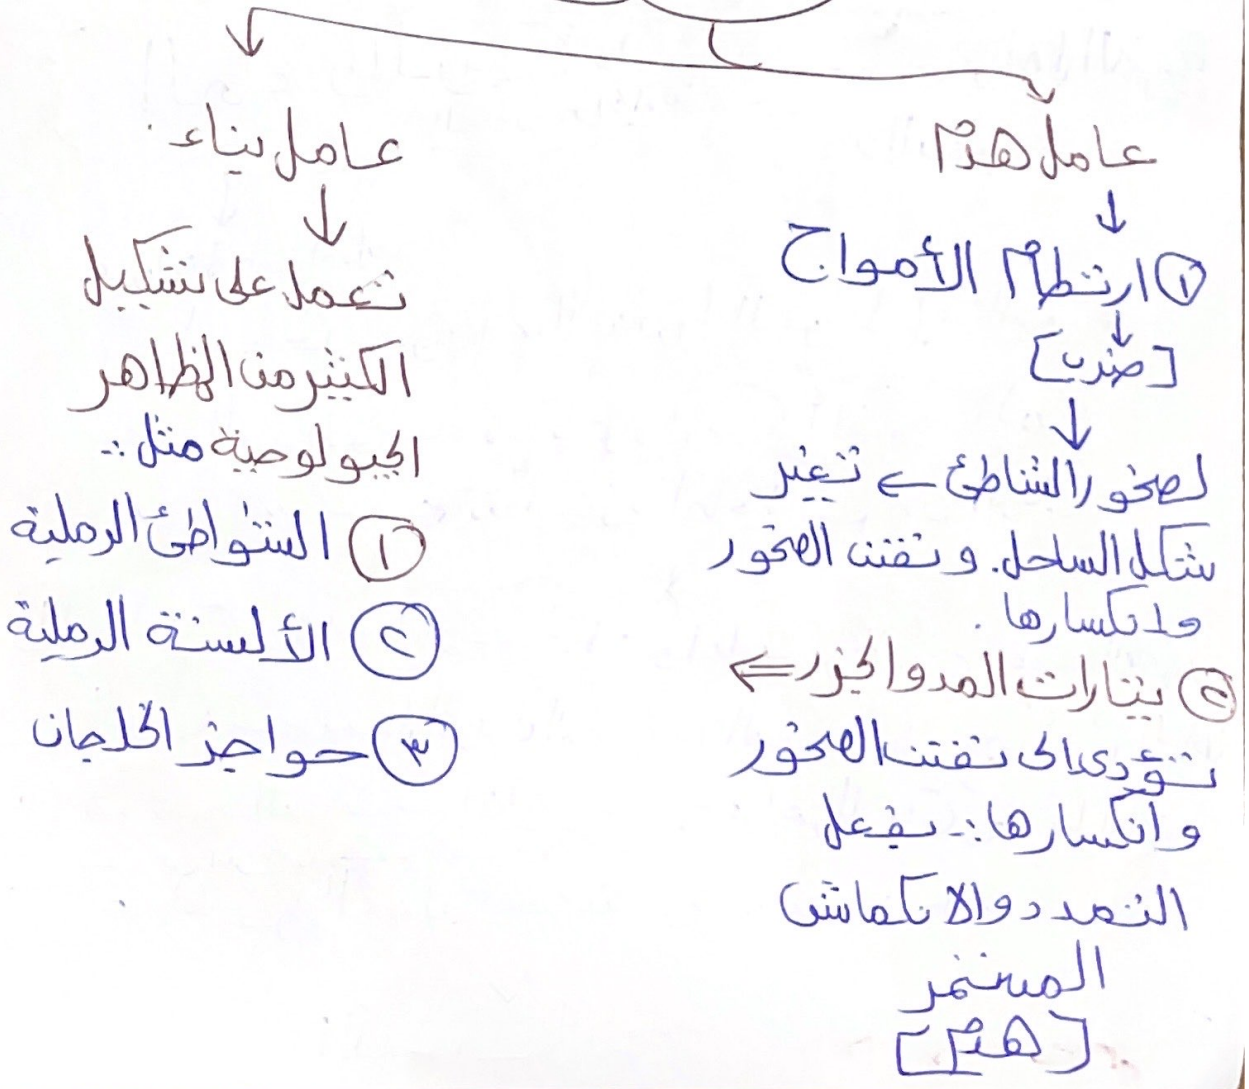 عامل هدم
↓
① ارتطام الأمواج
↓
[ضرب]
↓
لصخور الشاطئ ← تغير
شكل الساحل. و تفتت الصخور
وانكسارها.
② تيارات المد والجزر ←
تؤدى الى تفتت الصخور
وانكسارها:- بفعل
التمدد والانكماش
المستمر
[هدم]
عامل بناء
↓
تعمل على تشكيل
الكثير من المظاهر
الجيولوجية مثل :-
① الشواطئ الرملية
② الألسنة الرملية
③ حواجز الخلجان